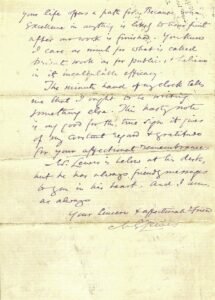 your life offers a path
Excellence in anything is
after our work is finished. You know
I care as much for what is called
private work as for public. I believe
in its incalculable efficacy.
The minute hand of my clock tells
me that I ought to be writing
something else. This hasty note
is only good for the true sign it gives
of my constant regard & gratitude
for your affectionate remembrance.
Mr. Lewes is below at his desk,
but he has always friendly messages
to you in his heart. And I am
as always
Your sincere & affectionate friend